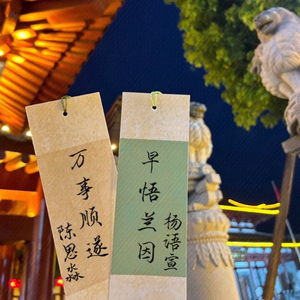 万事顺遂
陈思淼
早悟兰因
杨语宣